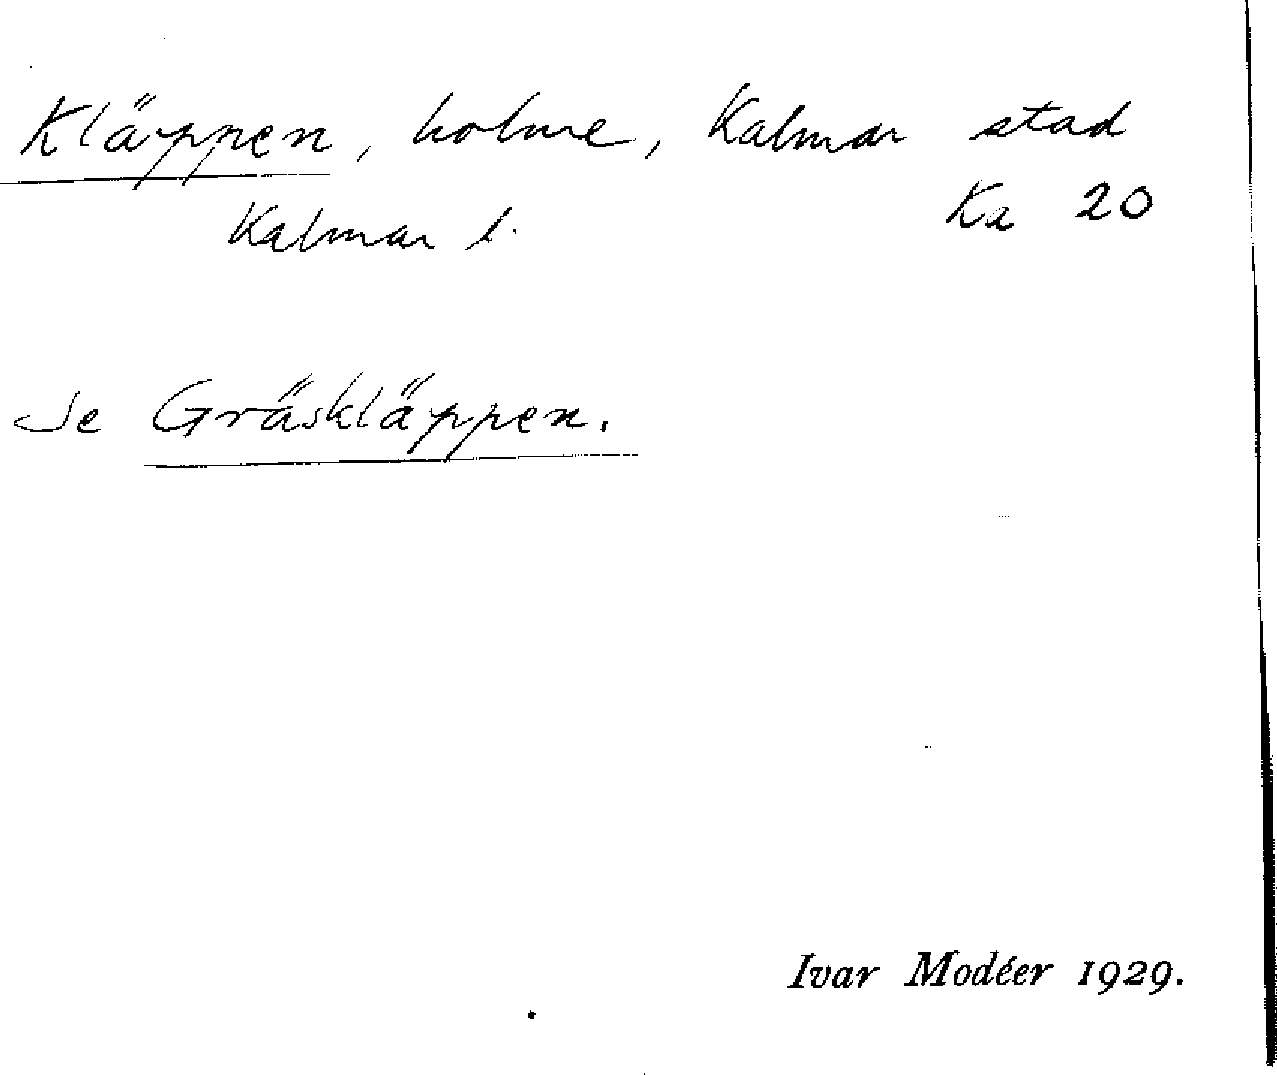 Kläppen, holme, Kalmar stad
Kalmar l. Ka 20
Se Gräskläppen.
Ivar Modéer 1929.